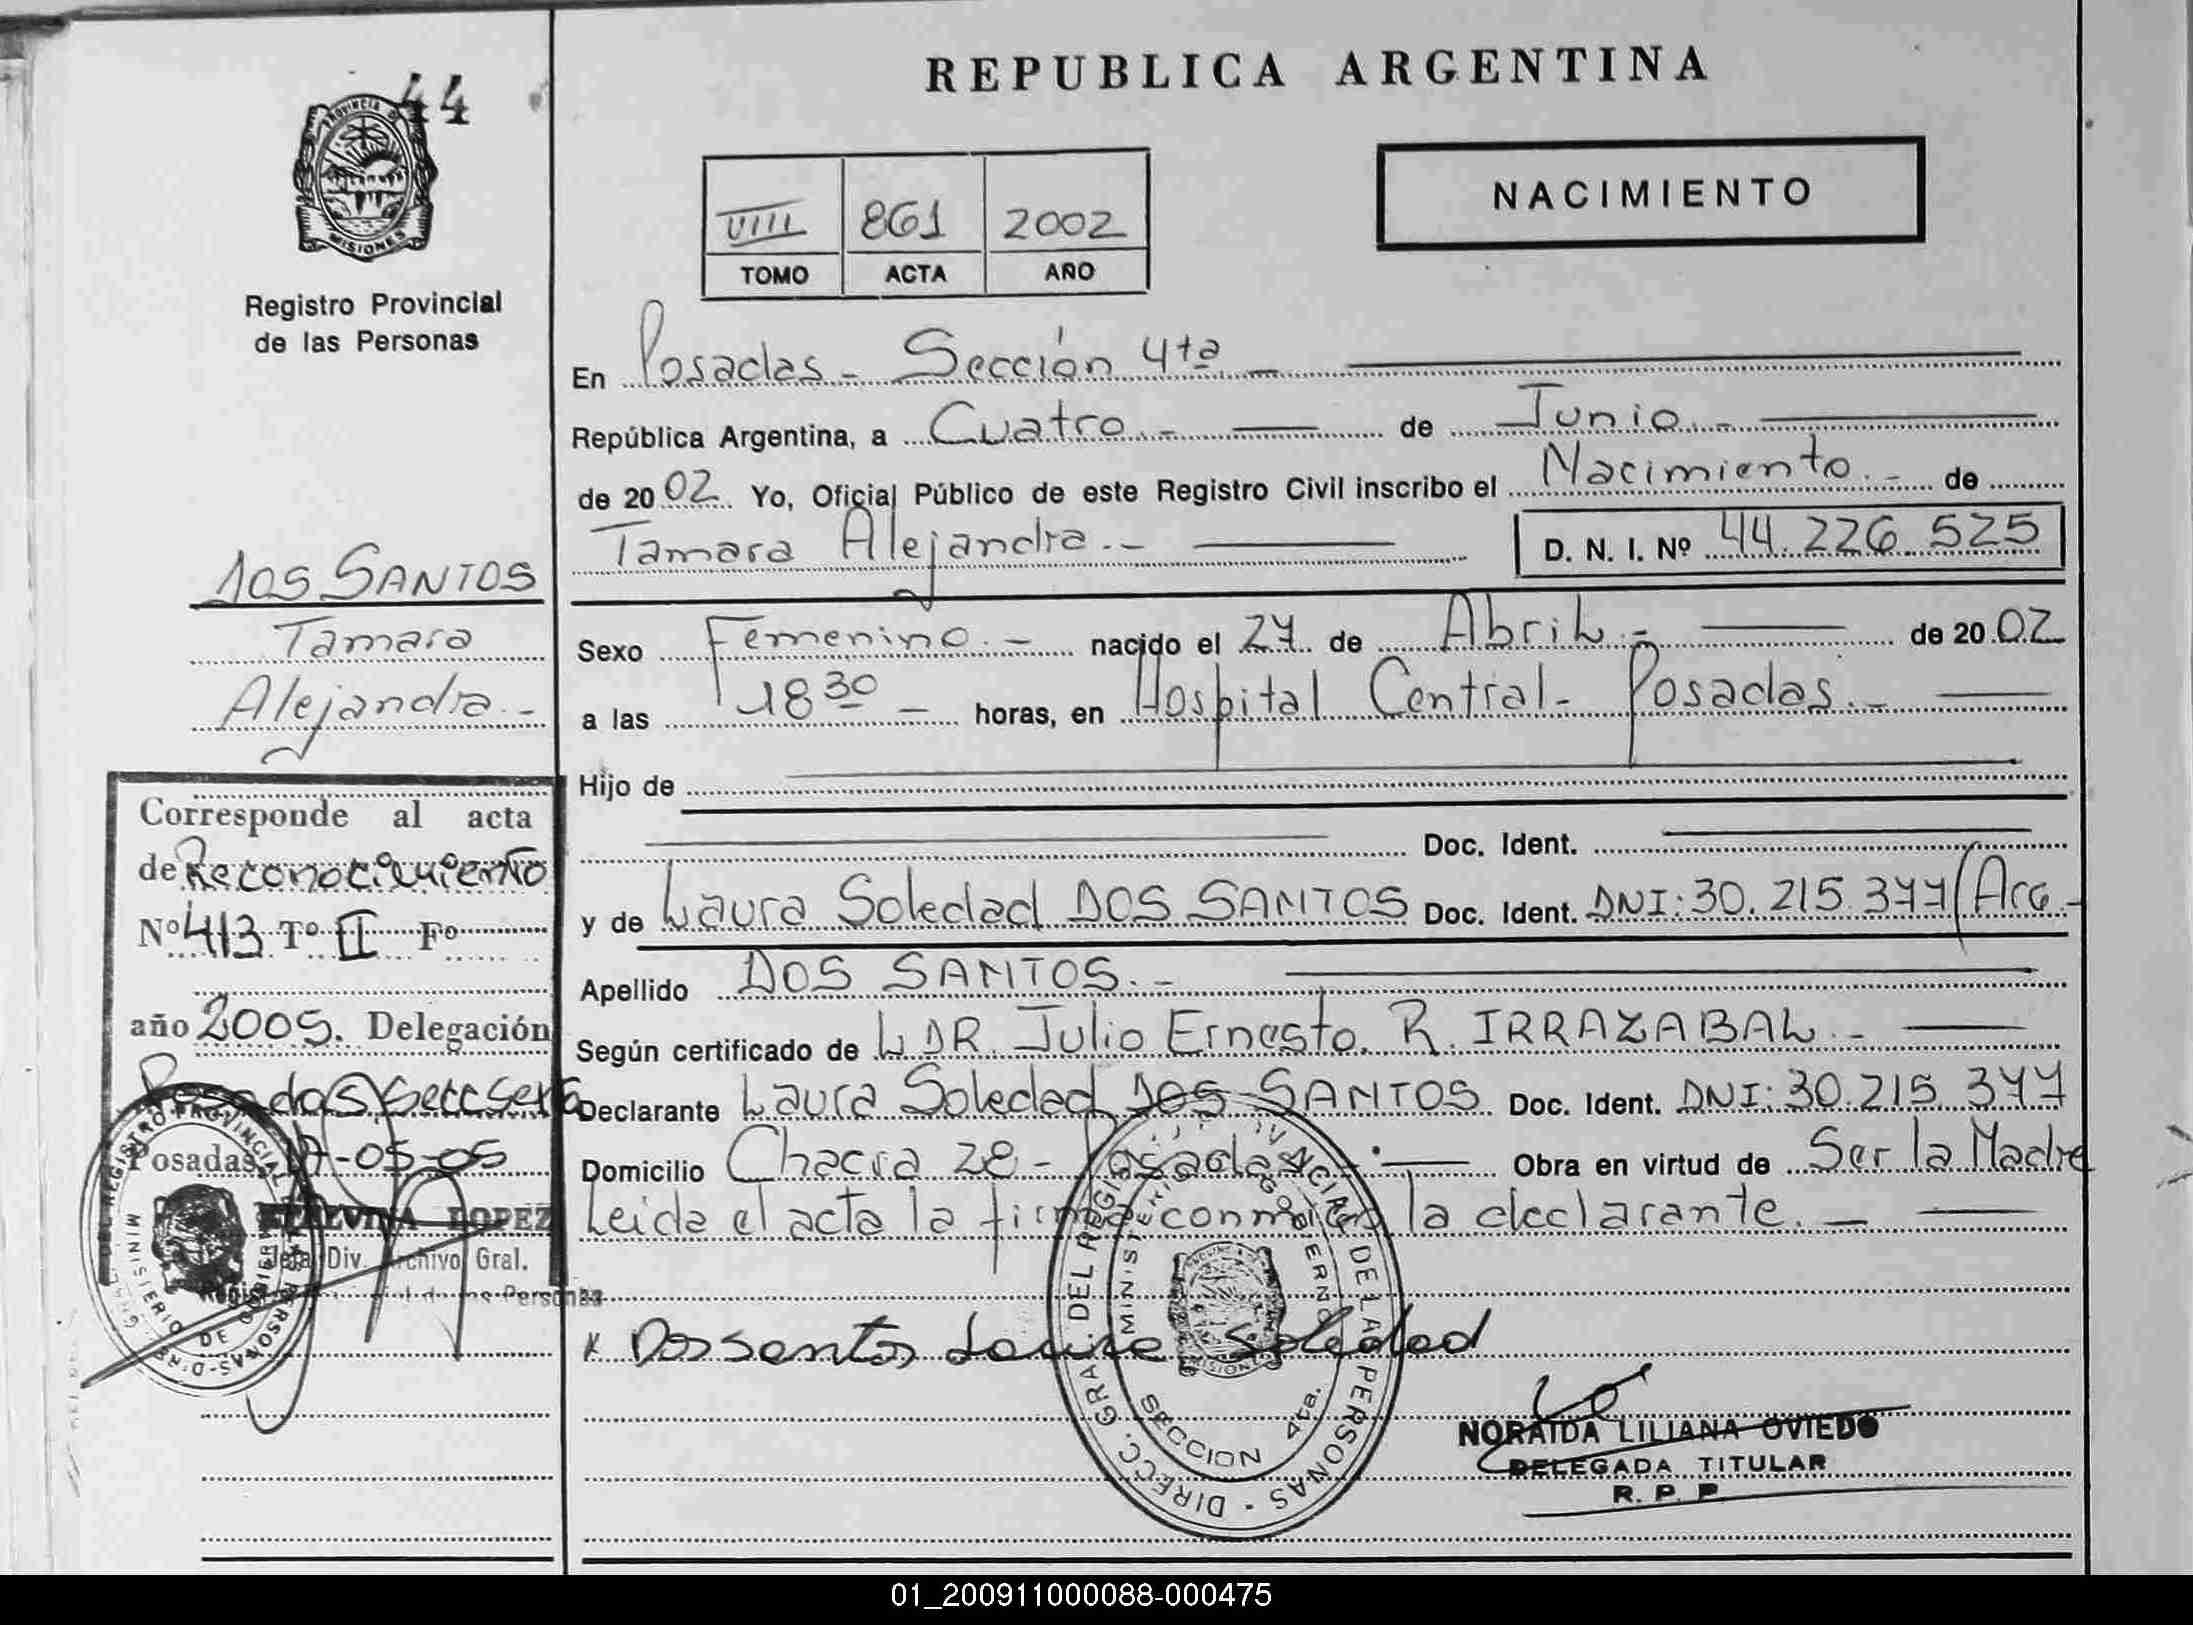 44
PROVINCIA DE
MISIONES
Registro Provincial
de las Personas
DOS SANTOS
Tamara
Alejandra.-
Corresponde al acta
de Reconocimiento
Nº 413 Tº II Fº
año 2005. Delegación
Posadas Secc Sexta
Posadas, 17-05-05
LOPEZ
Jefa Div. Archivo Gral.
REPUBLICA ARGENTINA
VIII 861 2002
TOMO ACTA AÑO
NACIMIENTO
En Posadas - Sección 4ta -
República Argentina, a Cuatro.- de Junio.-
de 2002. Yo, Oficial Público de este Registro Civil inscribo el Nacimiento.- de
Tamara Alejandra.- D. N. I. Nº 44.226.525
Sexo Femenino.- nacido el 27 de Abril.- de 2002
a las 18 30 - horas, en Hospital Central- Posadas.-
Hijo de
Doc. Ident.
y de Laura Soledad DOS SANTOS Doc. Ident. DNI: 30.215.377/Arg.-
Apellido DOS SANTOS.-
Según certificado de DR. Julio Ernesto R. IRRAZABAL.-
Declarante Laura Soledad DOS SANTOS Doc. Ident. DNI: 30.215.377
Domicilio Chacra 28 - Posadas.- Obra en virtud de Ser la Madre
Leida el acta la firma conmigo la declarante.-
x Dos santos Laura Soledad
DIRECC. GRAL. DEL REGISTRO PROVINCIAL DE LAS PERSONAS
MINISTERIO DE GOBIERNO
SECCION 4ta.
NORAIDA LILIANA OVIEDO
DELEGADA TITULAR
R. P. P.
01_200911000088-000475